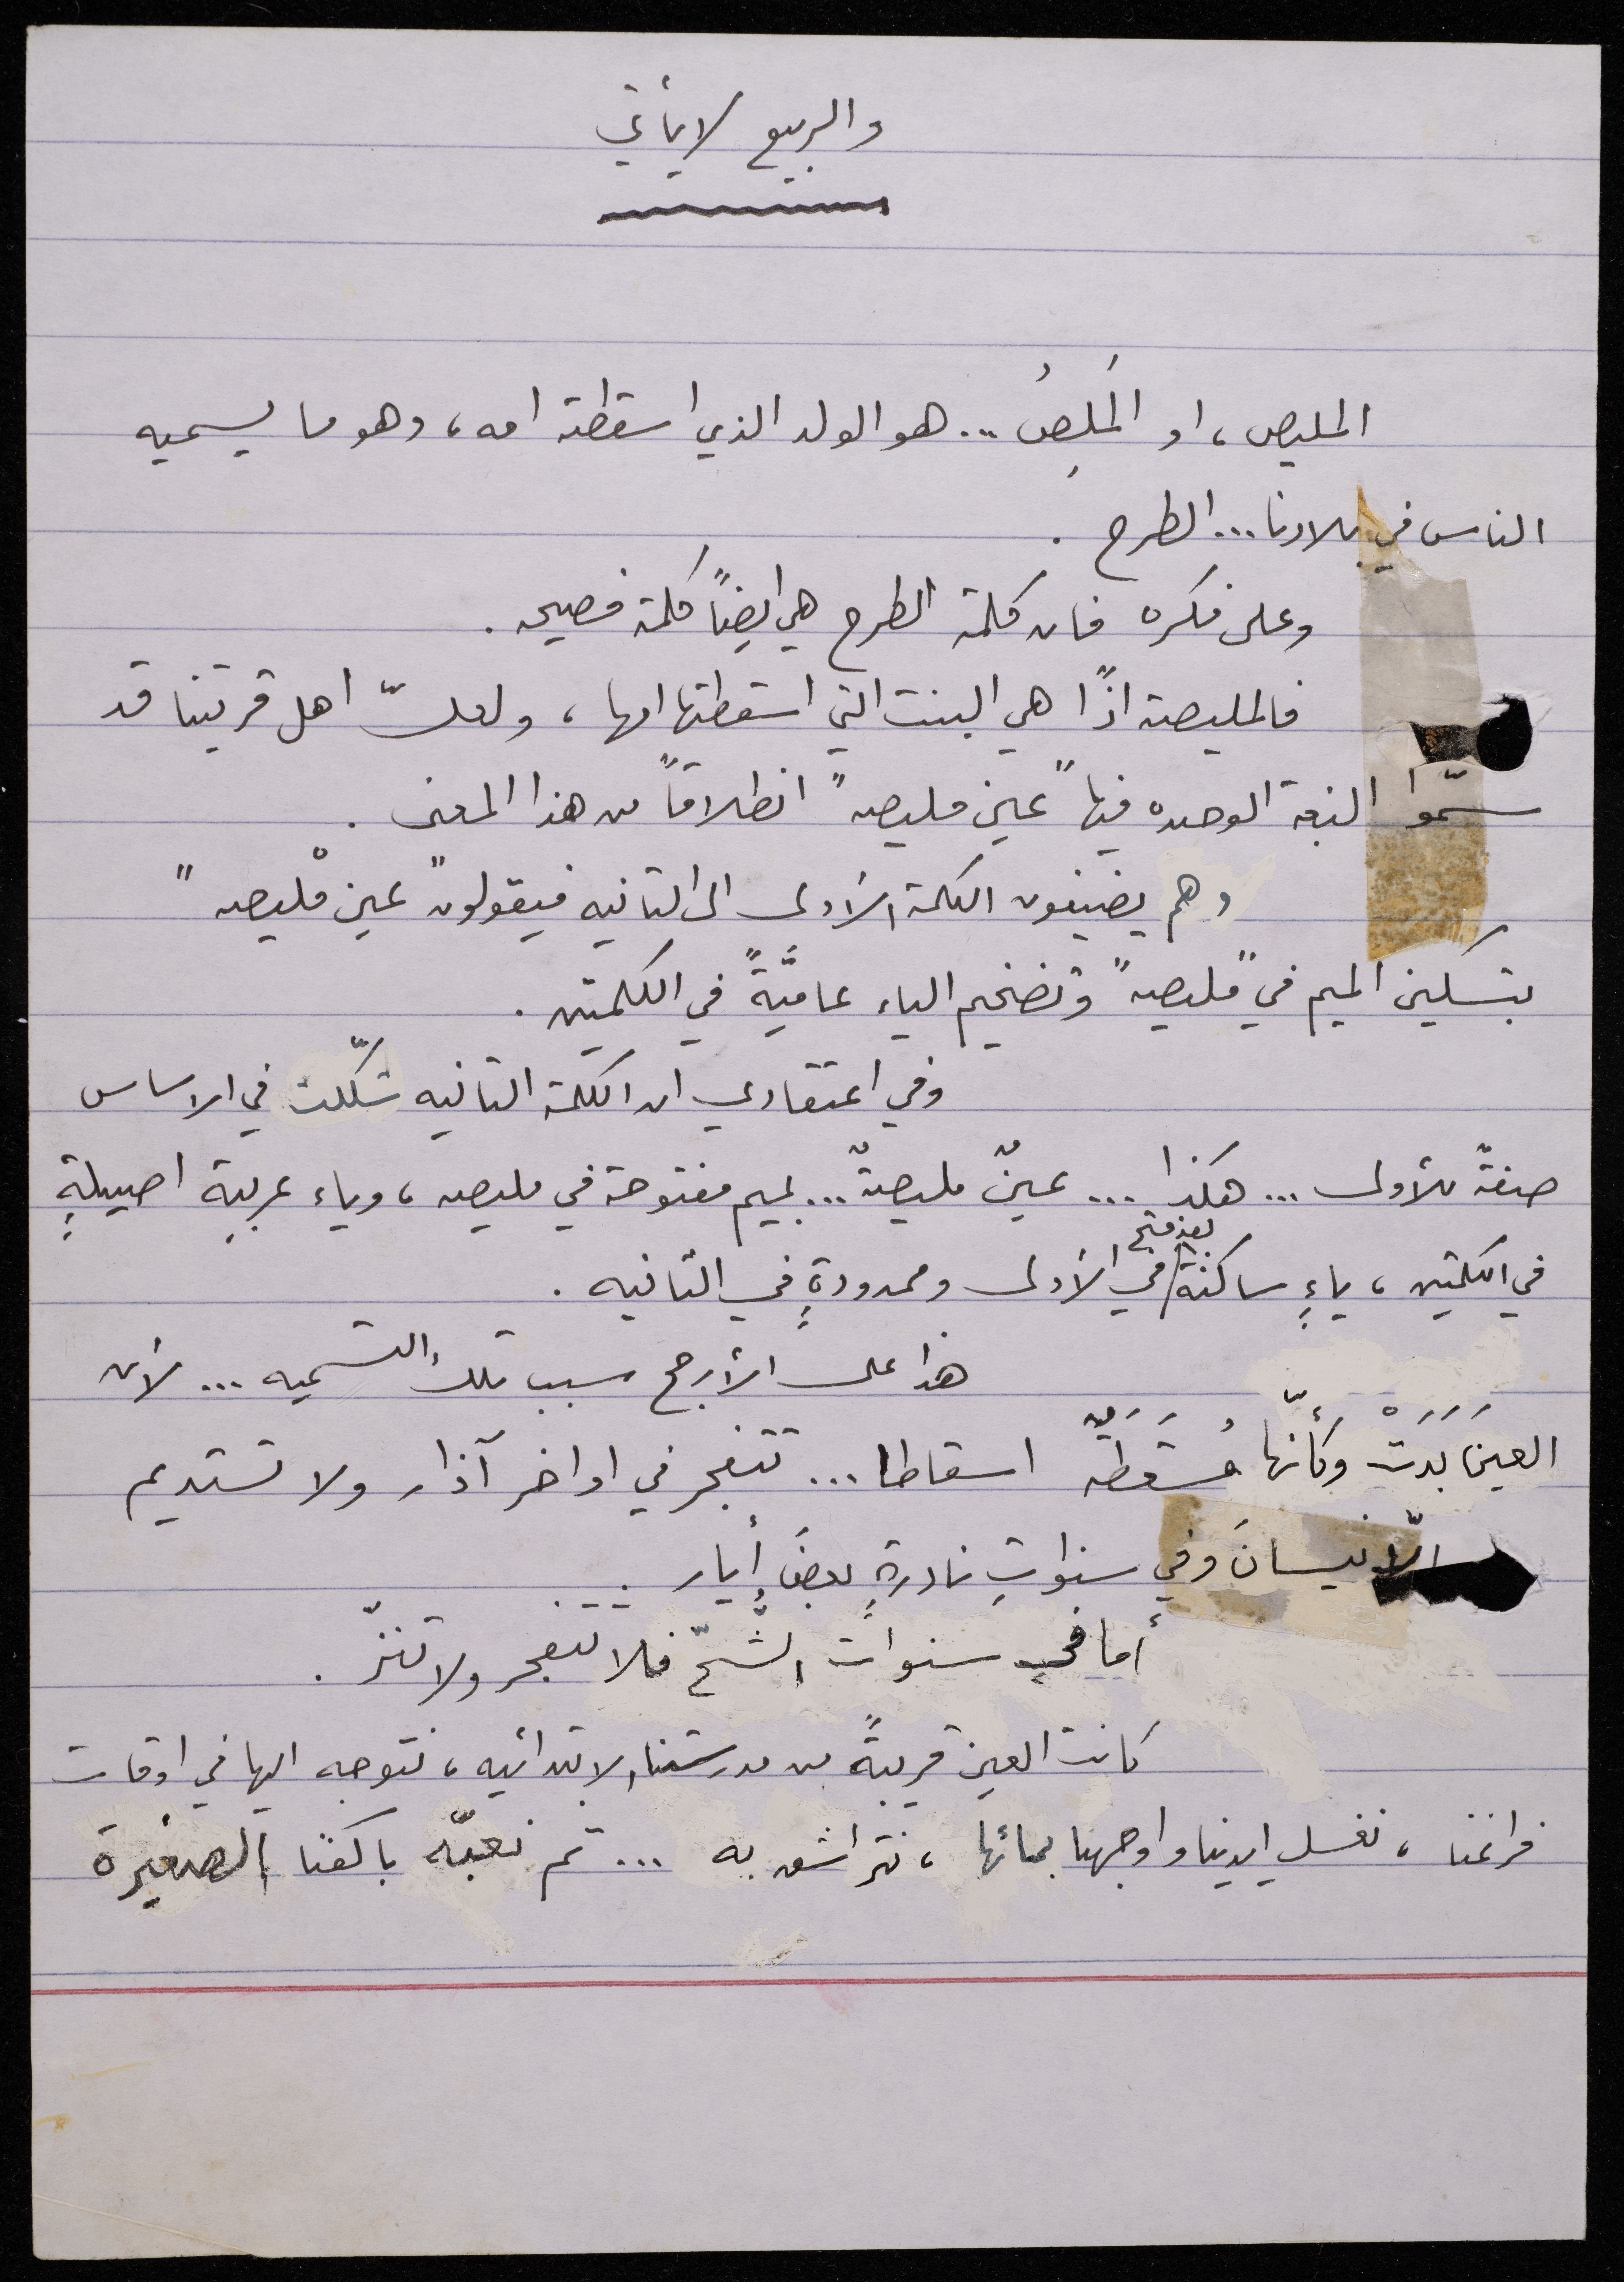 والربيع لا يأتي
المليص، او المَلِصُ... هو الولد الذي اسقطته امه، وهو ما يسميه
الناس في بلادنا... الطرح.
وعلى فكره فان كلمة الطرح هي ايضاً كلمة فصيحه.
فالمليصة اذاً هي البنت التي اسقطتها امها، ولعلّ اهل قريتنا قد
سمّوا النبعة الوحيده فيها "عين مليصه" انطلاقاً من هذا المعنى.
وهم يضيفون الكلمة الأولى الى الثانيه فيقولون "عين مْليصه"
بتسكين الميم في "مليصه" وتضخيم الياء عاميَّةً في الكلمتين.
وفي اعتقادي ان الكلمة الثانيه شكّلت في الاساس
صفةً للأولى... هكذا... عينٌ مليصةٌ... بميم مفتوحة في مليصه، وياء عربيةٍ اصيلةٍ
في الكلمتين، ياءٍ ساكنة بعد فتح في الأولى وممدودةٍ في الثانيه.
هذا على الأرجح سبب تلك التسميه... لأن
العين بَدَتْ وكَأنّها مُسْقَطَةٌ اسقاطا... تتفجر في اواخر آذار ولا تستديم
الّا نيسانَ وفي سنواتٍ نادرةٍ بعضَ أيار.
أما في سنوات الشّحّ فلا تتفجر ولا تنزّ.
كانت العين قريبةً من مدرستنا الابتدائيه، نتوجه اليها في اوقات
فراغنا، نغسل ايدينا واوجهنا بمائها، نتراشق به... ثم نعبّه باكفنا الصغيرة